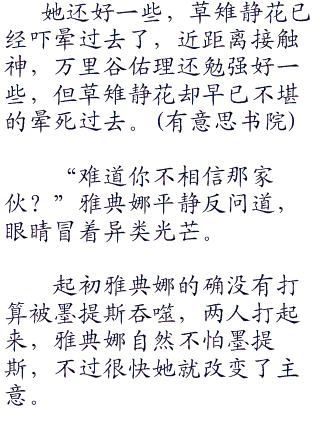 她还好一些，草雉静花已
经吓晕过去了，近距离接触
神，万里谷佑理还勉强好一
些，但草雉静花却早已不堪
的晕死过去。(有意思书院)
“难道你不相信那家
伙？”雅典娜平静反问道，
眼睛冒着异类光芒。
起初雅典娜的确没有打
算被墨提斯吞噬，两人打起
来，雅典娜自然不怕墨提
斯，不过很快她就改变了主
意。